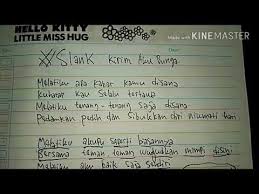 HELLO KITTY
LITTLE MISS HUG
Made with KINEMASTER
Slank Kirim Aku Bunga
Melatiku apa kabar kamu disana
Kuharap kau selalu tertawa
Melatiku tenang-tenang saja disana
Padamkan pedih dan sibukkan diri nikmati hari
Melatiku akupun seperti biasanya
Bersama teman teman wujudkan mimpi disini
Melatiku aku baik saja